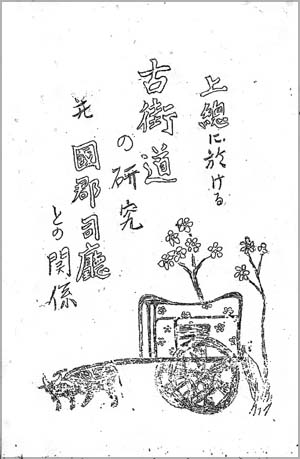 上總に於ける
古街道
の研究
並 國郡司廳
との関係